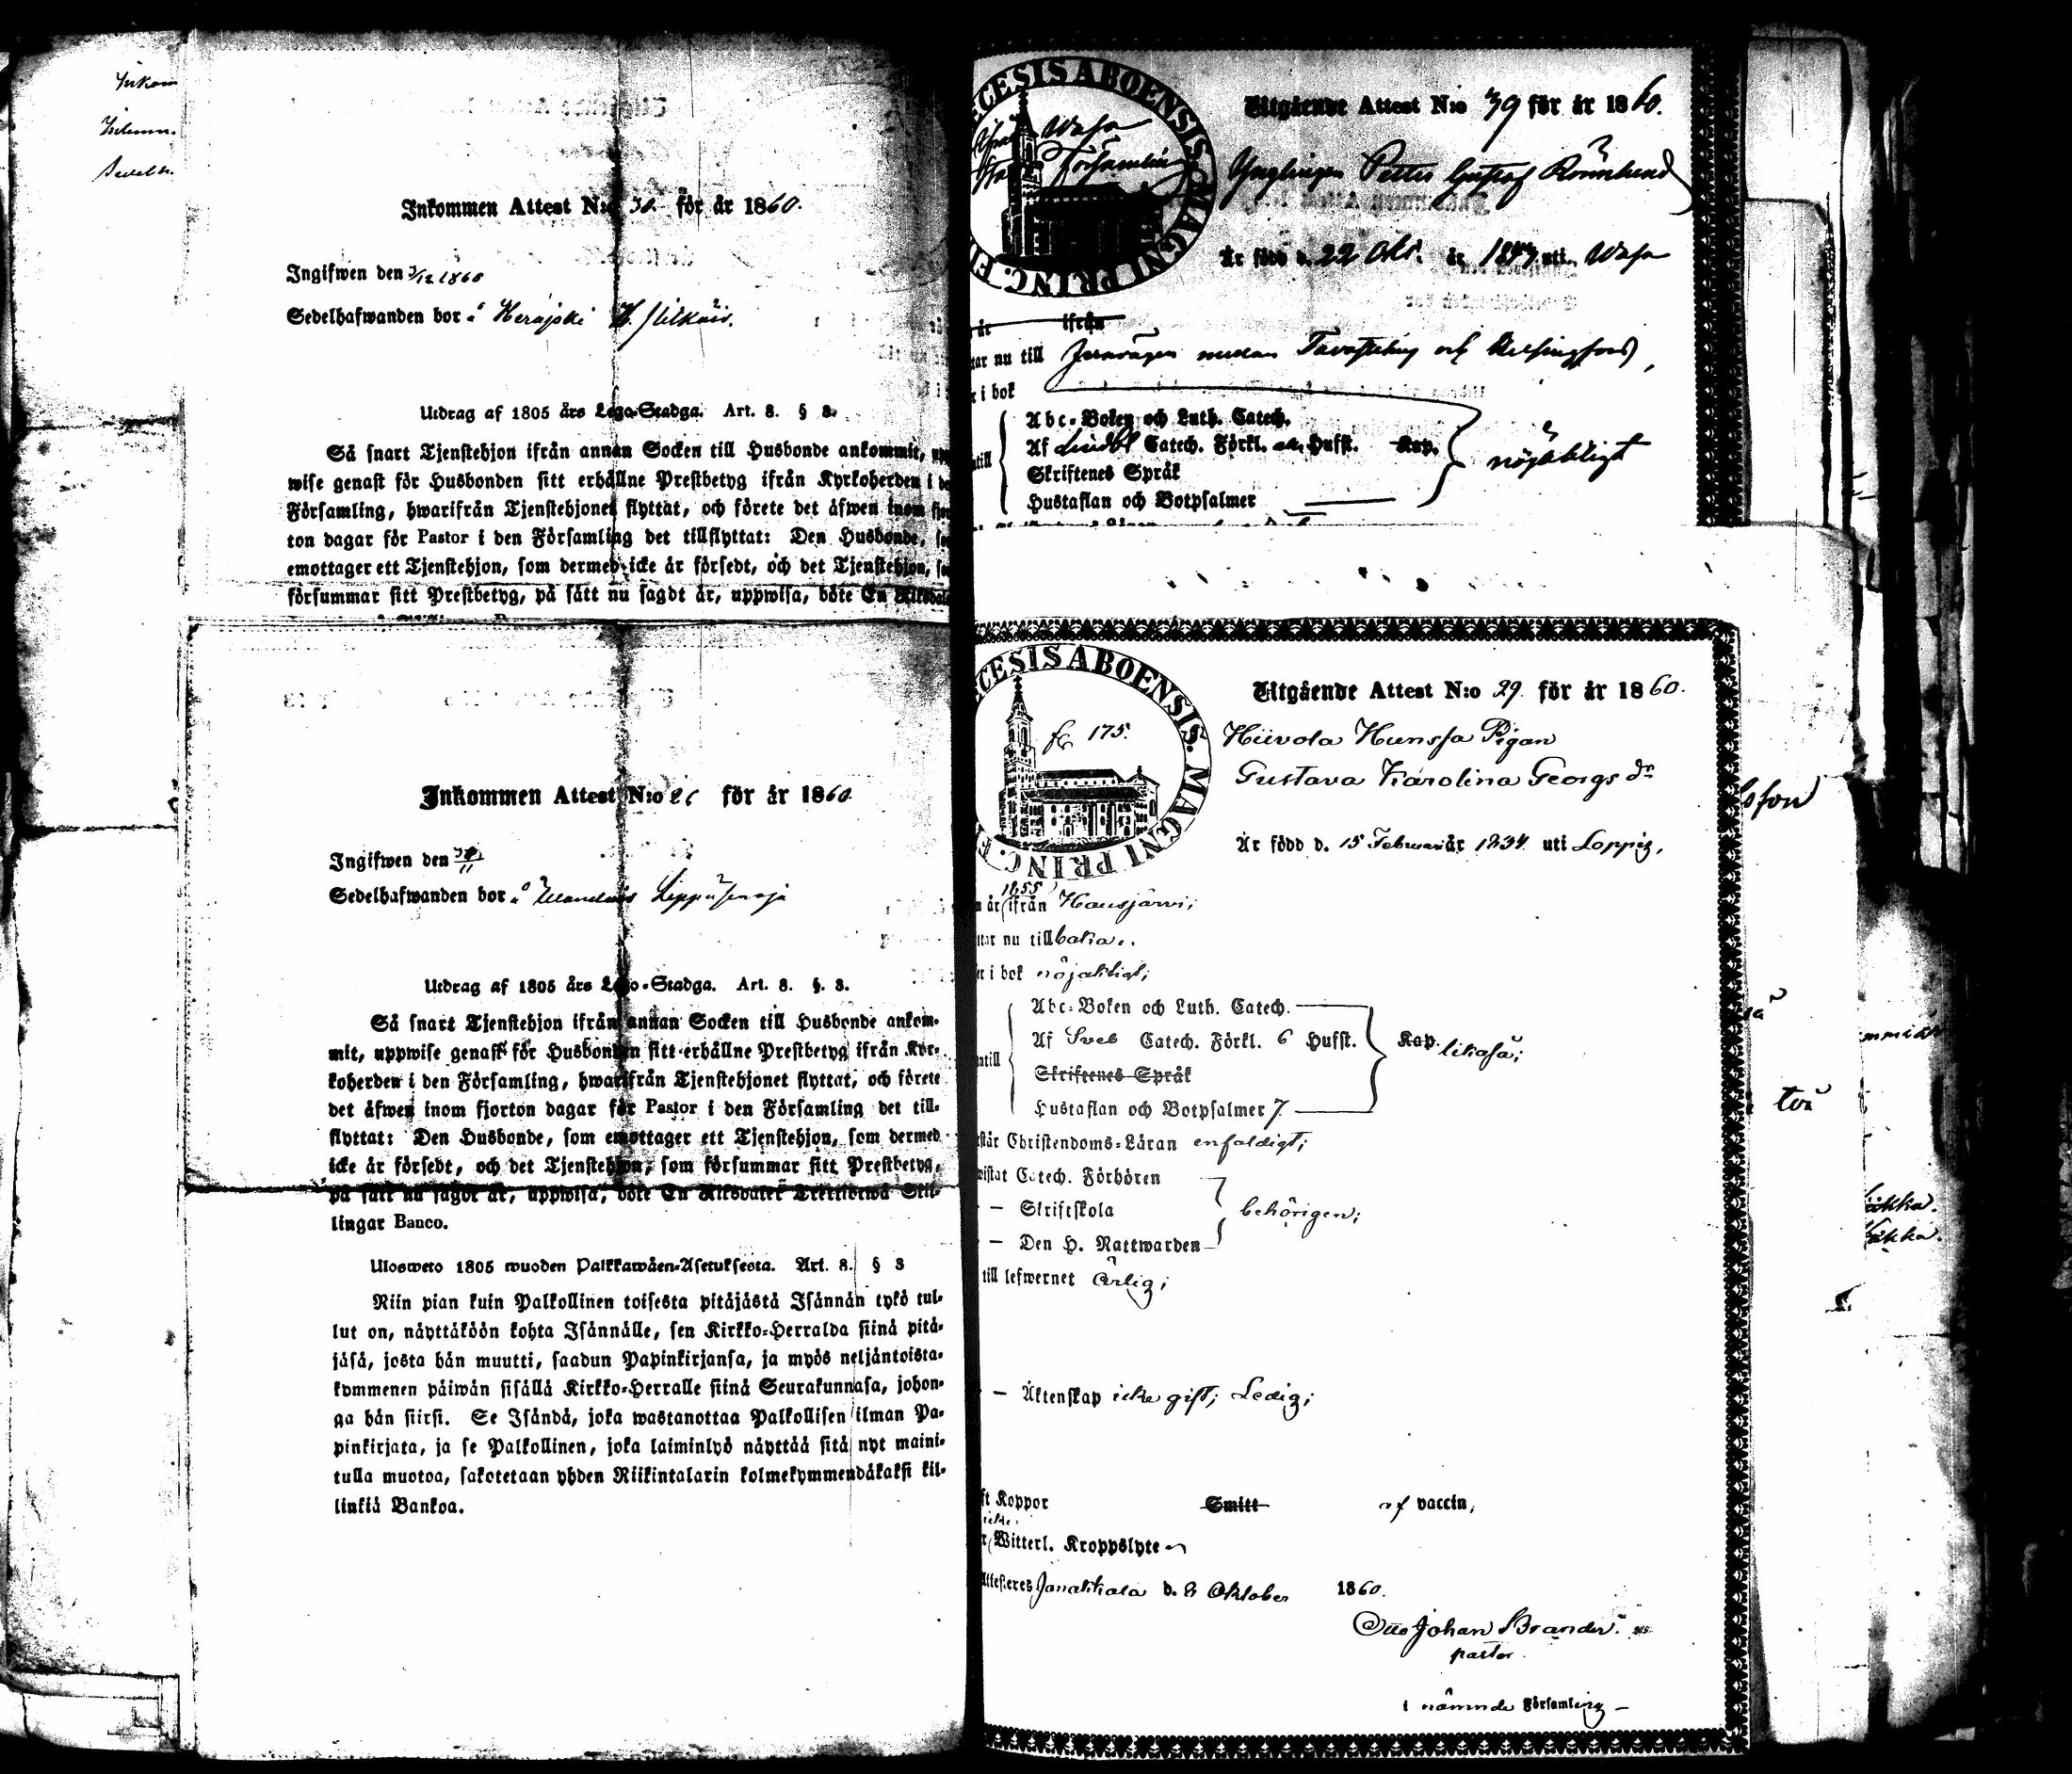 Inkommen Attest N:o 30. för år 1860.
Ingifwen den 3/12 1860
Sedelhafwanden bor å Herajoki
Utdrag af 1805 års Lego-Stadga. Art. 8. § 3.
Så snart Tjenstehjon ifrån annan Socken till Husbonde ankommit,
wise genast för Husbonden sitt erhållne Prestbetyg ifrån Kyrkoherden i
Församling, hwarifrån Tjenstehjonet flyttat, och förete det äfwen inom
ton dagar för Pastor i den Församling det tillflyttat: Den Husbonde,
emottager ett Tjenstehjon, som dermed icke är försedt, och det Tjenstehjon,
försummar sitt Prestbetyg, på sätt nu sagdt är, uppwisa, böte En
Inkommen Attest N:o för år 1860.
Ingifwen den
Sedelhafwanden bor å
Utdrag af 1805 års Lego-Stadga. Art. 8. §. 3.
Så snart Tjenstehjon ifrån annan Socken till Husbonde ankom-
mit, uppwise genast för Husbonden sitt erhållne Prestbetyg ifrån Kyr-
koherden i den Församling, hwarifrån Tjenstehjonet flyttat, och förete
det äfwen inom fjorton dagar för Pastor i den Församling det till-
flyttat: Den Husbonde, som emottager ett Tjenstehjon, som dermed
icke är försedt, och det Tjenstehjon, som försummar sitt Prestbetyg,
på sätt nu sagdt är, uppwisa, böte En Riksdaler Trettiotwå Skil-
lingar Banco.
Ulosweto 1805 wuoden Palkkawäen-Asetuksesta. Art. 8. § 3
Niin pian kuin Palkollinen toisesta pitäjästä Isännän tykö tul-
lut on, näyttäköön kohta Isännälle, sen Kirkko-Herralda siinä pitä-
jäsä, josta hän muutti, saadun Papinkirjansa, ja myös neljäntoista-
kymmenen päiwän sisällä Kirkko-Herralle siinä Seurakunnasa, johon-
ga hän siirsi. Se Isändä, joka wastanottaa Palkollisen ilman Pa-
pinkirjata, ja se Palkollinen, joka laiminlyö näyttää sitä nyt maini-
tulla muotoa, sakotetaan yhden Riikintalarin kolmekymmendäkaksi kil-
linkiä Bankoa.
CESIS ABOENSIS. MAGNI PRINC. F
Wasa
Församling
Utgående Attest N:o 79 för år 1860.
Ynglingen Petter Gustaf Rönnlund
Är född d. 22 Okt. år uti Wasa
år ifrån
tar nu till Jernvägen mellan Tavastehus och Helsingfors,
r i bok
Abc-Boken och Luth. Catech.
Af Lindbl Catech. Förkl. Hufst. Kap.
Skriftenes Språk
Hustaflan och Botpsalmer
nöjaktigt
CESIS ABOENSIS. MAGNI PRINC. F
fr 175.
Utgående Attest N:o 29. för år 1860.
Hiivola Hunssa Pigan
Gustava Karolina Georgs dr
Är född d. 15 Februari år 1834 uti Loppis,
1855
år ifrån Hausjärvi;
ttar nu tillbaka.
er i bok nöjaktigt;
Abc-Boken och Luth. Catech.
Af Sveb Catech. Förkl. 6 Hufst. Kap. likaså;
Skriftenes Språk
Hustaflan och Botpsalmer 7
står Christendoms-Läran enfaldigt;
wistat Catech. Förhören
— Skriftskola behörigen;
— Den H. Nattwarden
till lefwernet ärlig;
— Äktenskap icke gift; Ledig;
ft Koppor Smitt af vaccin,
icke
Witterl. Kroppslyte
Attesteres Janakkala d. 8 Oktober 1860.
Otto Johan Brander.
pastor
i nämnde Församling